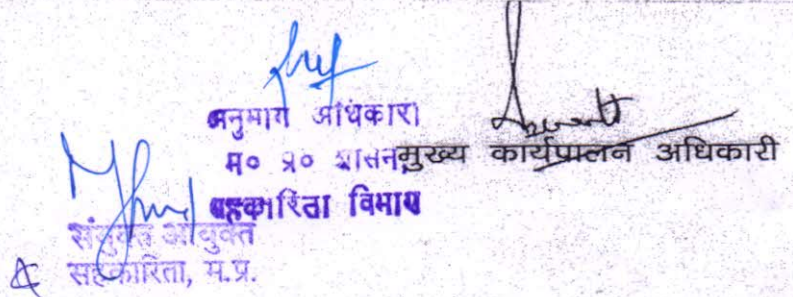 अनुभाग अधिकारी
म० प्र० शासन,
सहकारिता विभाग
मुख्य कार्यपालन अधिकारी
संयुक्त आयुक्त
सहकारिता, म.प्र.